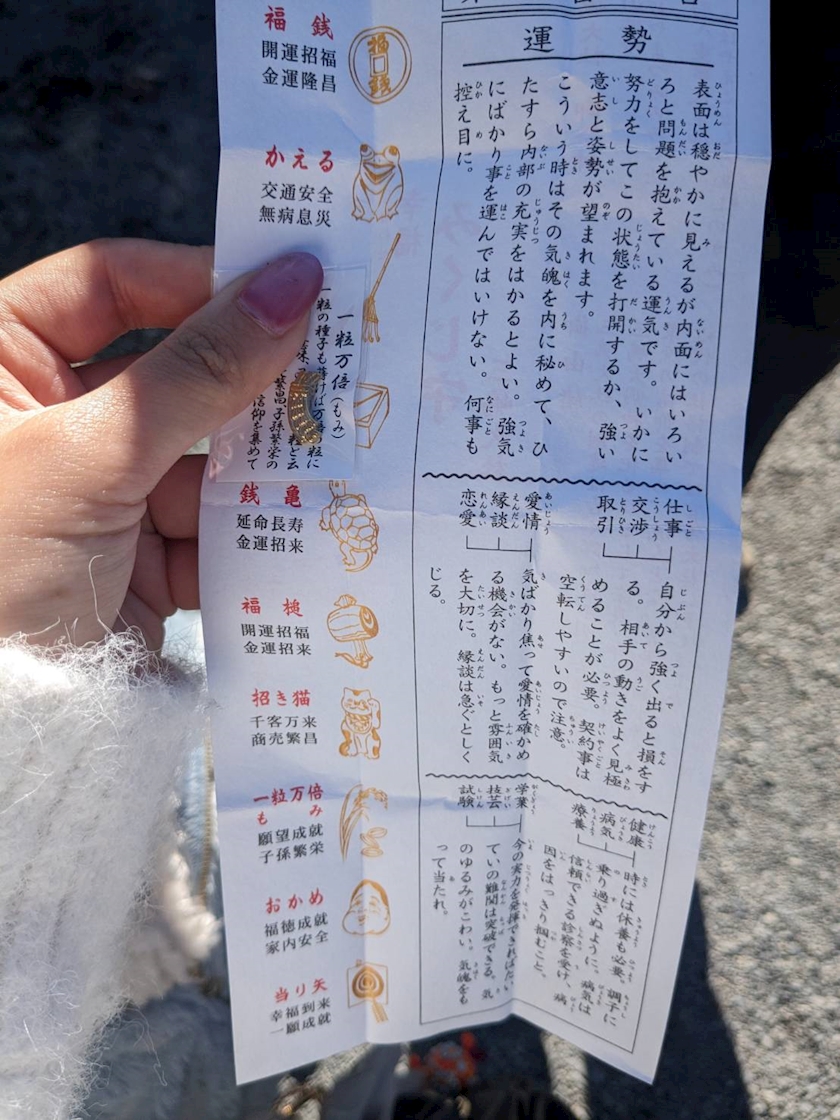 運勢
表面は穏やかに見えるが内面にはいろい
ろと問題を抱えている運気です。いかに
努力をしてこの状態を打開するか、強い
意志と姿勢が望まれます。
こういう時はその気魄を内に秘めて、ひ
たすら内部の充実をはかるとよい。強気
にばかり事を運んではいけない。何事も
控え目に。
仕事
交渉
取引
自分から強く出ると損をす
る。相手の動きをよく見極
めることが必要。契約事は
空転しやすいので注意。
愛情
縁談
恋愛
気ばかり焦って愛情を確かめ
る機会がない。もっと雰囲気
を大切に。縁談は急ぐとしく
じる。
健康
病気
療養
時には休養も必要。調子に
乗り過ぎぬように。病気は
信頼できる診察を受け、病
因をはっきり掴むこと。
学業
技芸
試験
今の実力を発揮できればたい
ていの難関は突破できる。気
のゆるみがこわい。気魂をも
って当たれ。
福銭
開運招福
金運隆昌
福
銭
かえる
交通安全
無病息災
一粒万倍(もみ)
一粒の種子も蒔けば万倍の粒に
繁昌子孫繁栄の
信仰を集めて
銭亀
延命長寿
金運招来
福槌
開運招福
金運招来
招き猫
千客万来
商売繁昌
一粒万倍
もみ
願望成就
子孫繁栄
おかめ
福徳成就
家内安全
当り矢
幸福到来
一願成就